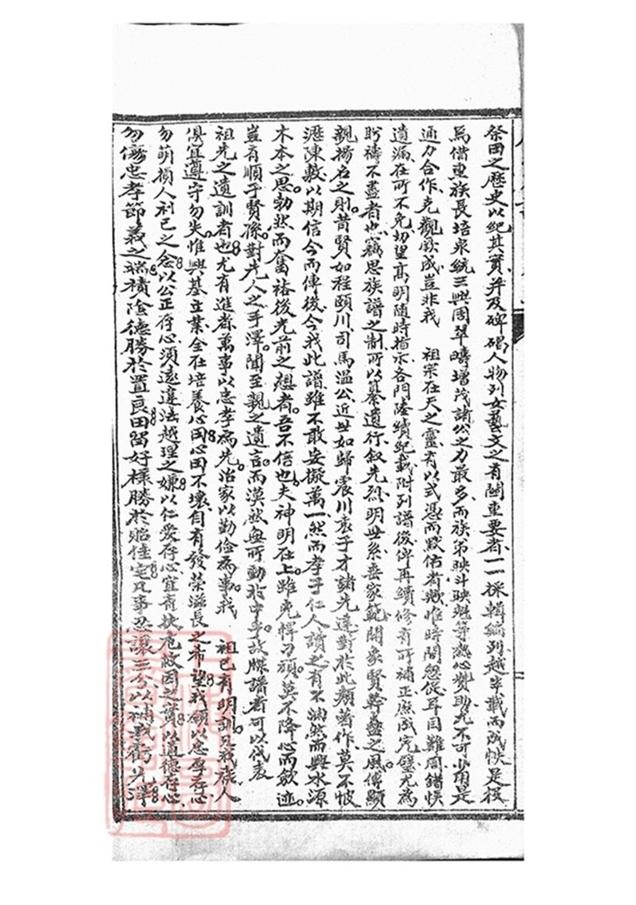 祭田之歷史以紀其實并及碑碣人物列女藝文之有關重要者一一採輯編列越半載而成快是役
為借重族長培來統三興周翠疇增茂諸公之力最多而族弟映斗映魁等熱心贊助尤不可少用是
通力合作克觀厥成豈非我　祖宗在天之靈有以式憑而默佑者歟惟時間怱促耳目難周錯悞
遺漏在所不免切望高明隨時指示各門陰蹟紀載附列譜後俾再續修有所補正庶成完璧尤為
盼禱不盡者也竊思族譜之制所以纂遺行叙先烈明世系垂家範闡象賢幹蠱之風傳顯
親揚名之則昔賢如程頤川司馬温公近世如歸震川袁子才諸先達對於此類著作莫不披
瀝陳敷以期信今而傳後今我此譜雖不敢妄擬萬一然而孝子仁人讀之有不油然而興水源
木本之思勃然而奮裕後光前之想者吾不信也夫神明在上雖克悍刁頑莫不降心而斂迹
豈有順子賢孫對先人之手澤聞至親之遺言而漠然無所動於中乎故牒譜者可以代表
祖先之遺訓者也尤有進者萬事以忠孝為先治家以勤儉為事我　祖已有明訓凡我族人
俱宜遵守勿失惟興基立業全在培養心田心田不壞自有發榮滋長之希望我願以忠厚存心
勿萌損人利己之念以公正存心須遠違法越理之嫌以仁愛存心宜有扶危救困之實以道德存心
勿傷忠孝節義之端積陰德勝於置良田留好樣勝於貽佳宅凡事忍讓三分以補我舊光澤